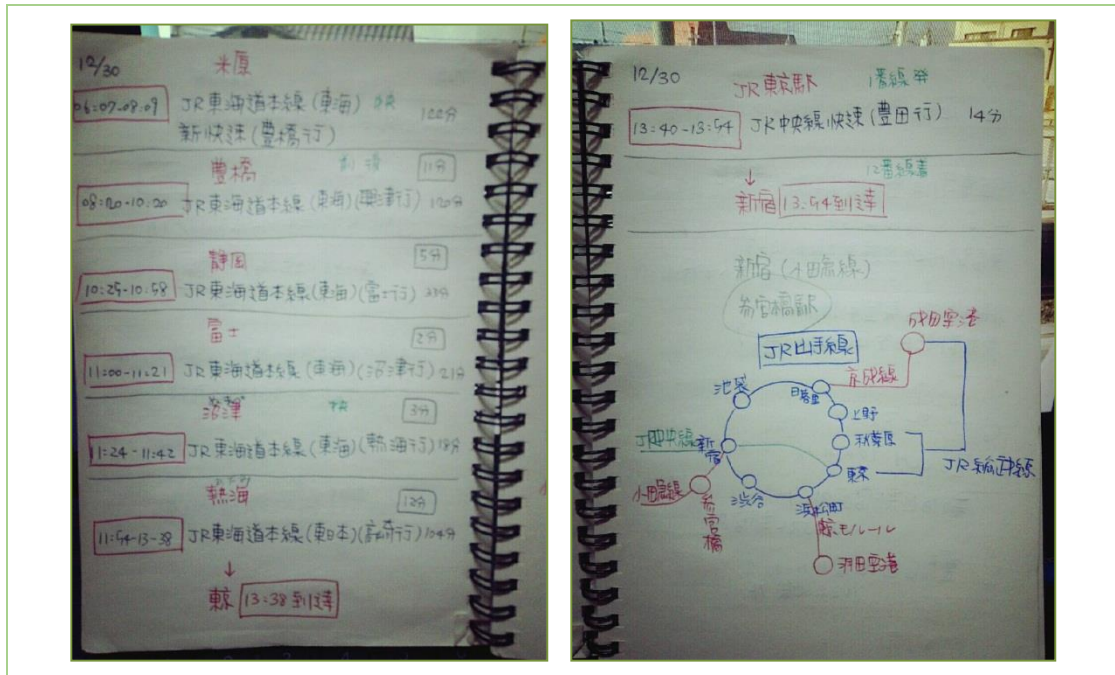 12/30
米原
06:07-08:09 JR東海道本線(東海) 快 122分
新快速(豊橋行)
豊橋 11分
08:20-10:20 JR東海道本線(東海)(興津行) 120分
静岡 5分
10:25-10:58 JR東海道本線(東海)(富士行) 33分
富士 2分
11:00-11:21 JR東海道本線(東海)(沼津行) 21分
沼津 快 3分
11:24-11:42 JR東海道本線(東海)(熱海行) 18分
熱海 12分
11:54-13-38 JR東海道本線(東日本) 104分
↓
東京 13:38到達
12/30
JR東京駅 1番線発
13:40-13:54 JR中央線快速(豊田行) 14分
12番線着
↓
新宿 13:54到達
新宿(小田急線)
参宮橋駅
成田空港
JR山手線
京成線
池袋
日暮里
上野
秋葉原
JR中央線
新宿
東京
JR総武線
小田急線
参宮橋
渋谷
浜松町
東京モノレール
羽田空港